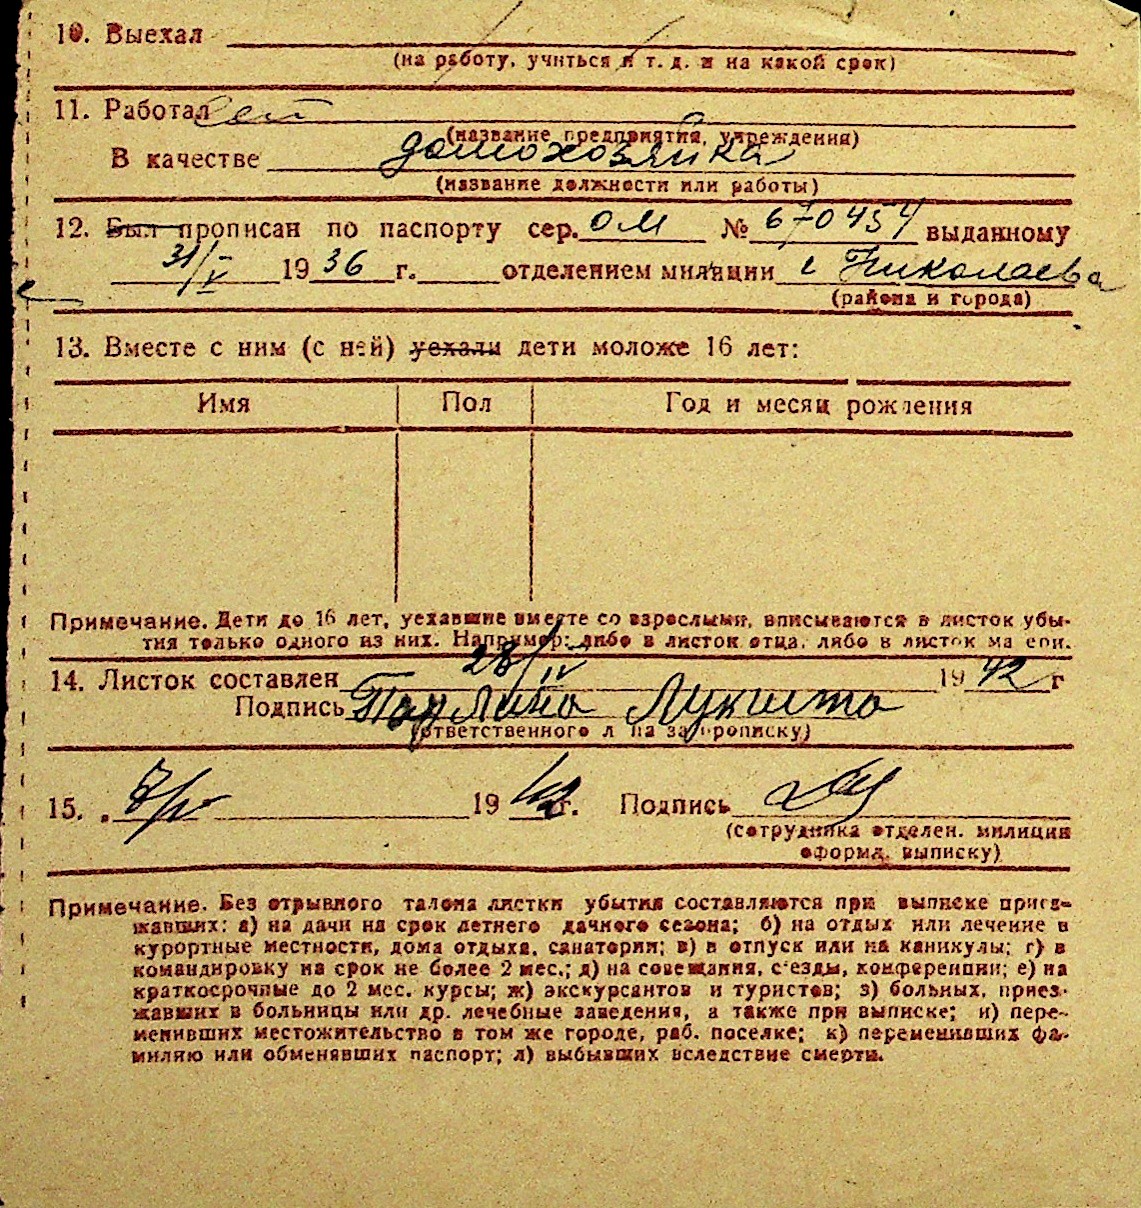 10. Выехал
(на работу, учиться и т. д. и на какой срок)
11. Работал
(название предприятия, учреждения)
В качестве домохозяйка
(название должности или работы)
12. Был прописан по паспорту сер. ОМ № 670454 выданному
31/V 1936 г. отделением милиции г Николаева
(района и города)
13. Вместе с ним (с ней) уехали дети моложе 16 лет:
Имя Пол Год и месяц рождения
Примечание. Дети до 16 лет, уехавшие вместе со взрослыми, вписываются в листок убы-
тия только одного из них. Например: либо в листок отца, либо в листок матери.
14. Листок составлен 28/IV 1942 г
Подпись Паулина
(ответственного лица за прописку)
15. 1942 г. Подпись
(сотрудника отделен. милиции
оформл. выписку)
Примечание. Без отрывного талона листки убытия составляются при выписке приез-
жавших: а) на дачи на срок летнего дачного сезона; б) на отдых или лечение в
курортные местности, дома отдыха, санатории; в) в отпуск или на каникулы; г) в
командировку на срок не более 2 мес.; д) на совещания, съезды, конференции; е) на
краткосрочные до 2 мес. курсы; ж) экскурсантов и туристов; з) больных, приез-
жавших в больницы или др. лечебные заведения, а также при выписке; и) пере-
менивших местожительство в том же городе, раб. поселке; к) переменивших фа-
милию или обменявших паспорт; л) выбывших вследствие смерти.